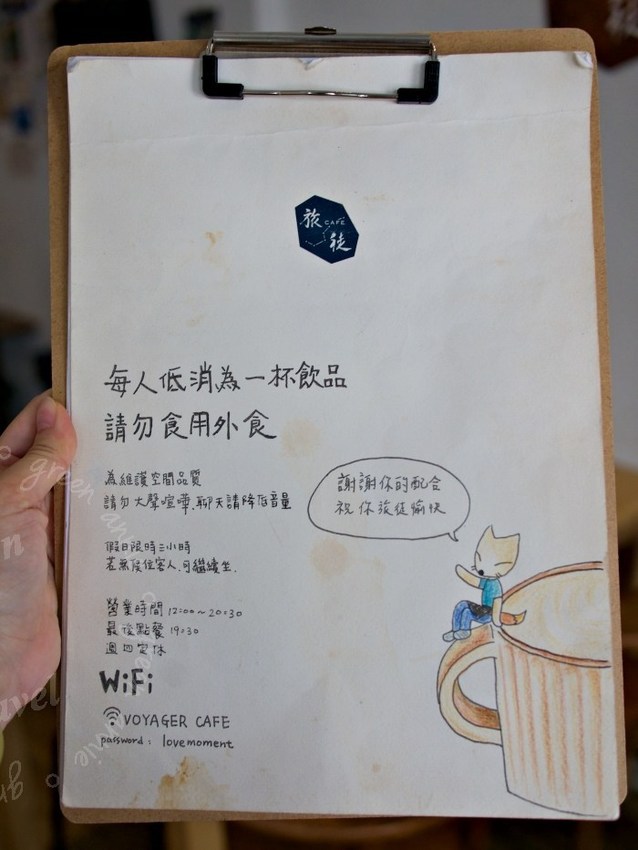 旅徒
CAFE
每人低消為一杯飲品
請勿食用外食
為維護空間品質
請勿大聲喧嘩.聊天請降低音量
謝謝你的配合
祝你旅徒愉快
假日限時三小時
若無候位客人.可繼續坐.
營業時間 12:00～20:30
最後點餐 19:30
週四定休
WiFi
VOYAGER CAFE
password: lovemoment